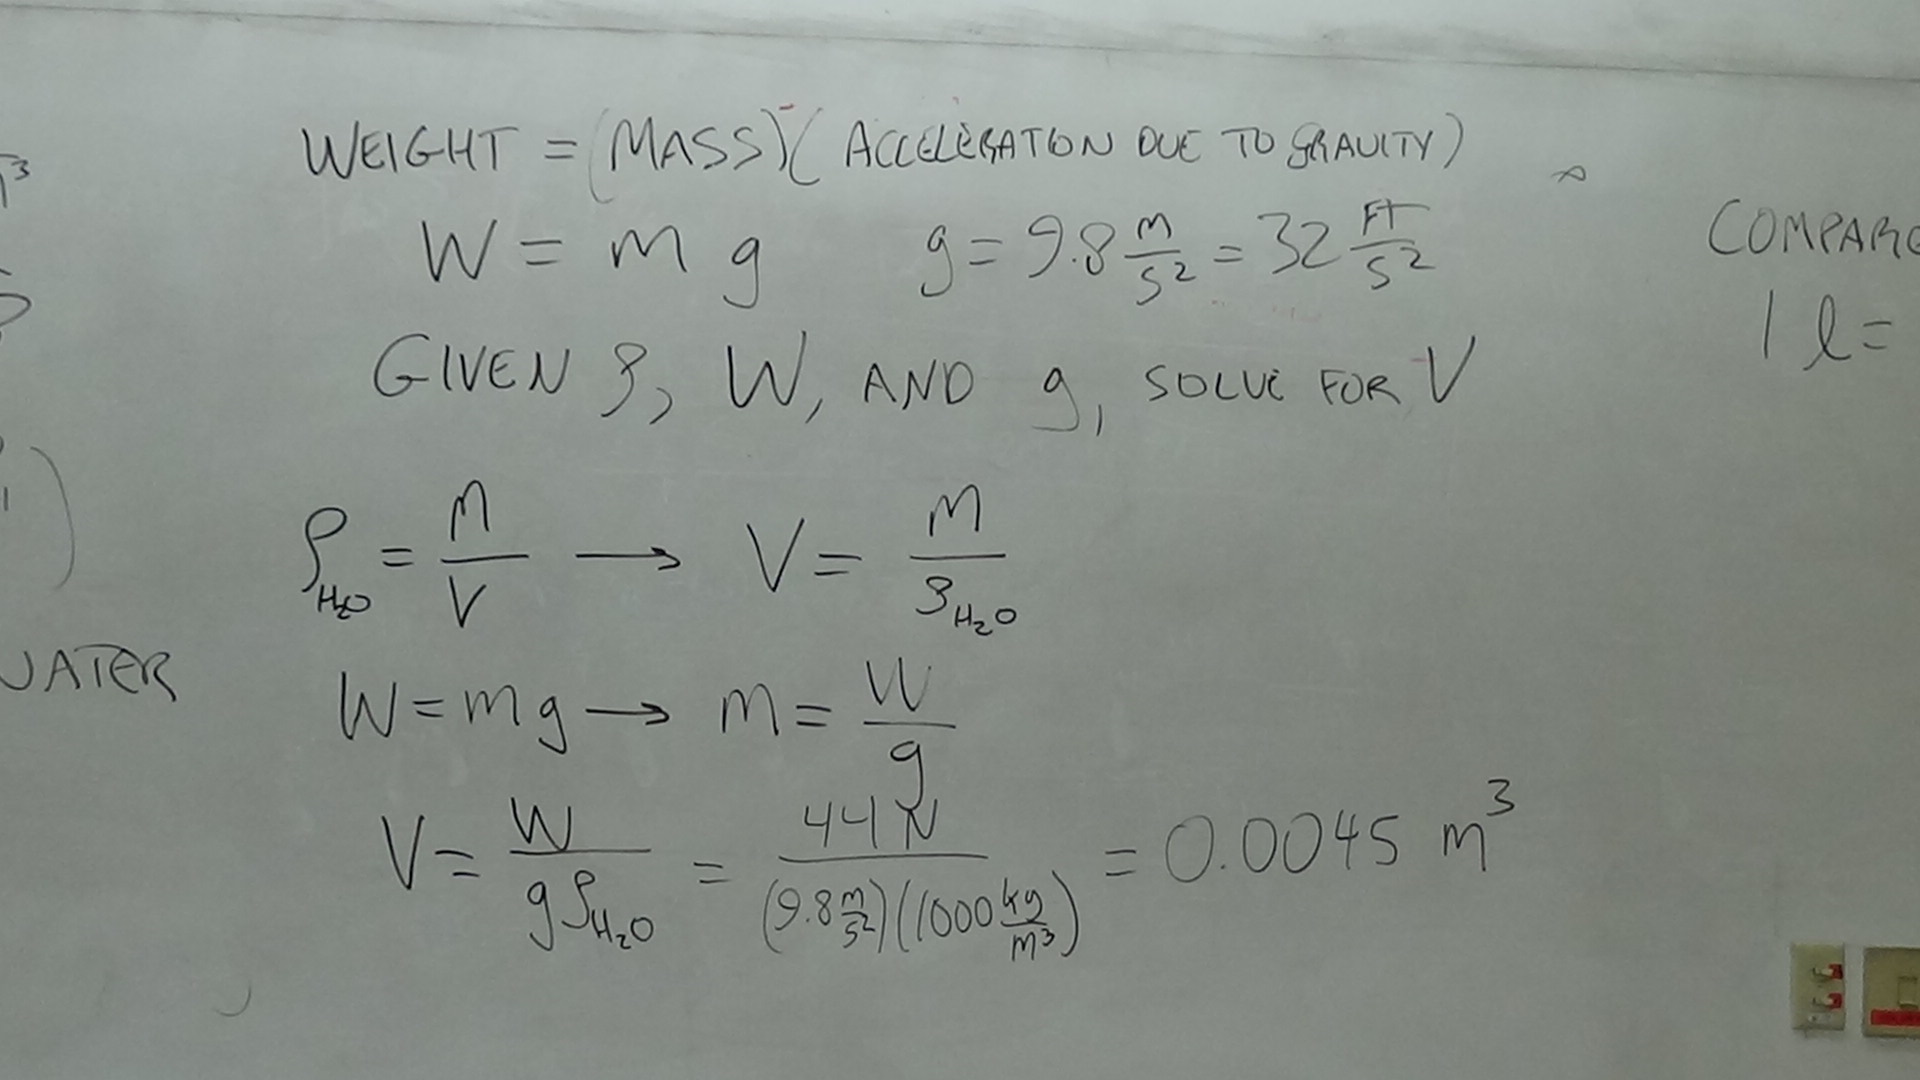 WEIGHT = (MASS)(ACCELERATION DUE TO GRAVITY)
W = m g g = 9.8 m/s² = 32 FT/s²
GIVEN ρ, W, AND g, SOLVE FOR V
ρ_H₂O = m/V → V = m/ρ_H₂O
W = mg → m = W/g
V = W/gρ_H₂O = 44 N/(9.8 m/s²)(1000 kg/m³) = 0.0045 m³
WATER
COMPARE
1 l =